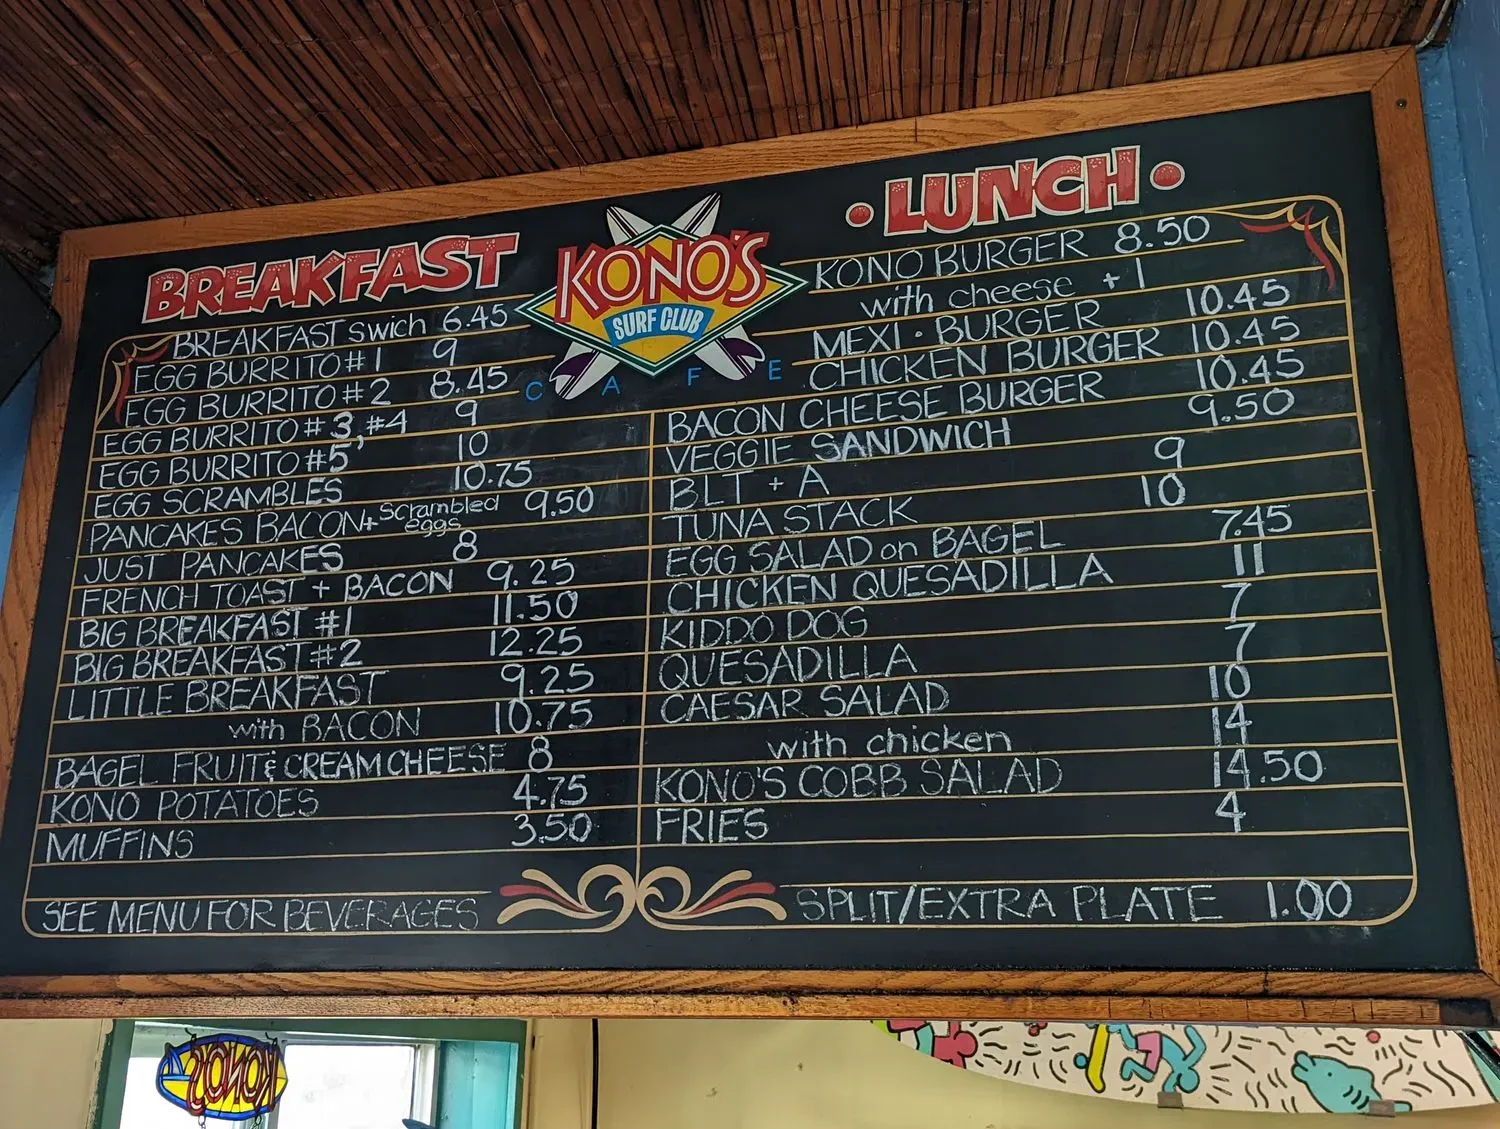 BREAKFAST
BREAKFAST swich 6.45
EGG BURRITO #1 9
EGG BURRITO #2 8.45
EGG BURRITO #3, #4 9
EGG BURRITO #5 10
EGG SCRAMBLES 10.75
PANCAKES BACON + Scrambled eggs 9.50
JUST PANCAKES 8
FRENCH TOAST + BACON 9.25
BIG BREAKFAST #1 11.50
BIG BREAKFAST #2 12.25
LITTLE BREAKFAST 9.25
with BACON 10.75
BAGEL FRUIT & CREAM CHEESE 8
KONO POTATOES 4.75
MUFFINS 3.50
SEE MENU FOR BEVERAGES
KONO'S
SURF CLUB
CAFE
• LUNCH •
KONO BURGER 8.50
with cheese + 1
MEXI • BURGER 10.45
CHICKEN BURGER 10.45
BACON CHEESE BURGER 10.45
VEGGIE SANDWICH 9.50
BLT + A 9
TUNA STACK 10
EGG SALAD on BAGEL 7.45
CHICKEN QUESADILLA 11
KIDDO DOG 7
QUESADILLA 7
CAESAR SALAD 10
with chicken 14
KONO'S COBB SALAD 14.50
FRIES 4
SPLIT/EXTRA PLATE 1.00
KONO'S